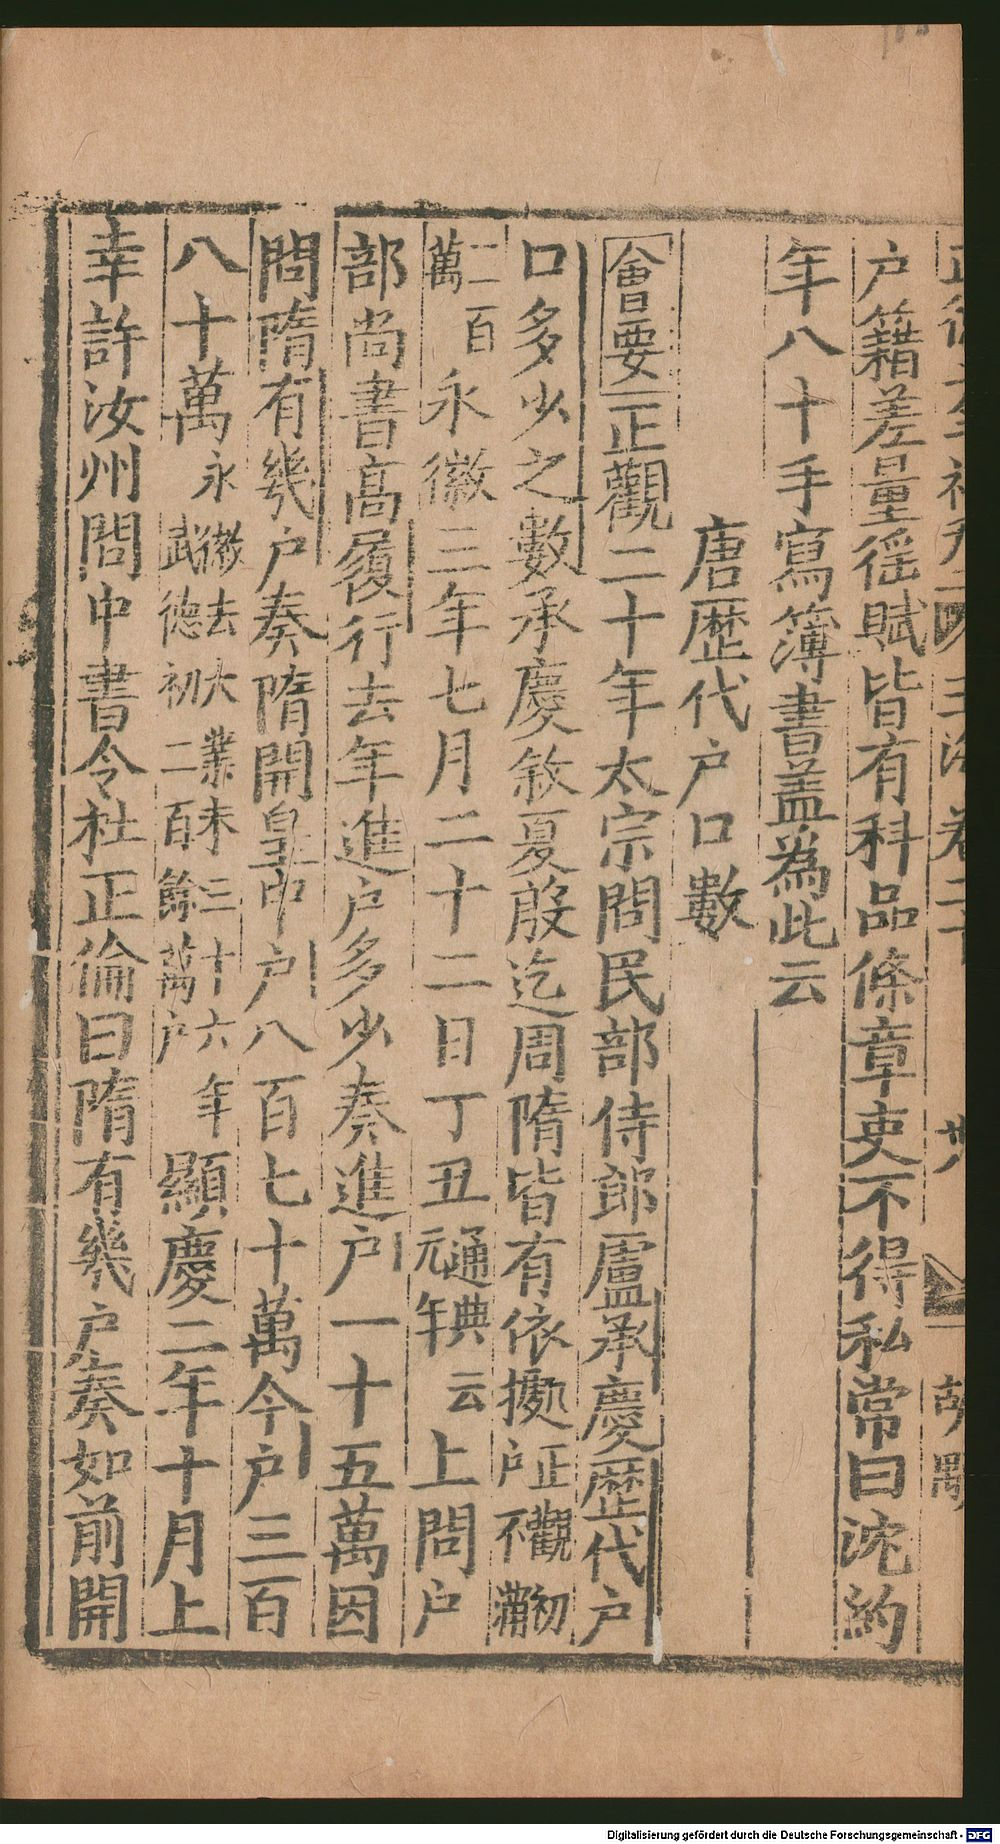 户籍差量徭賦皆有科品條章吏不得私常曰沈約
年八十手寫簿書蓋為此云
唐歷代户口數
會要正觀二十年太宗問民部侍郎盧承慶歷代户
口多少之數承慶敘夏殷迄周隋皆有依據正觀初户不滿
三百萬永徽三年七月二十二日丁丑通典云元年上問户
部尚書高履行去年進户多少奏進户一十五萬因
問隋有幾户奏隋開皇中户八百七十萬今户三百
八十萬永徽去大業末三十六年武德初二百餘萬户顯慶二年十月上
幸許汝州問中書令杜正倫曰隋有幾户奏如前開
Digitalisierung gefördert durch die Deutsche Forschungsgemeinschaft - DFG